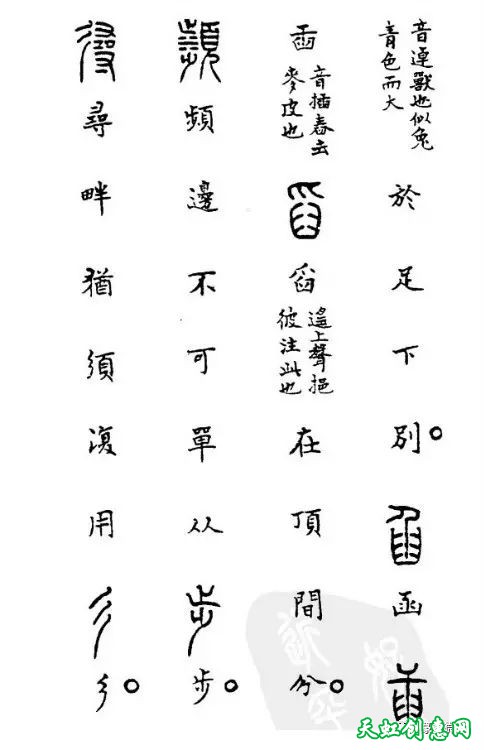 音逴獸也似兔
青色而大
於足下別。函
臿
音插舂去
麥皮也
舀
遙上聲挹
彼注此也
在頂間分。
頻邊不可單从步。
尋畔猶須復用彳。
天虹创意网